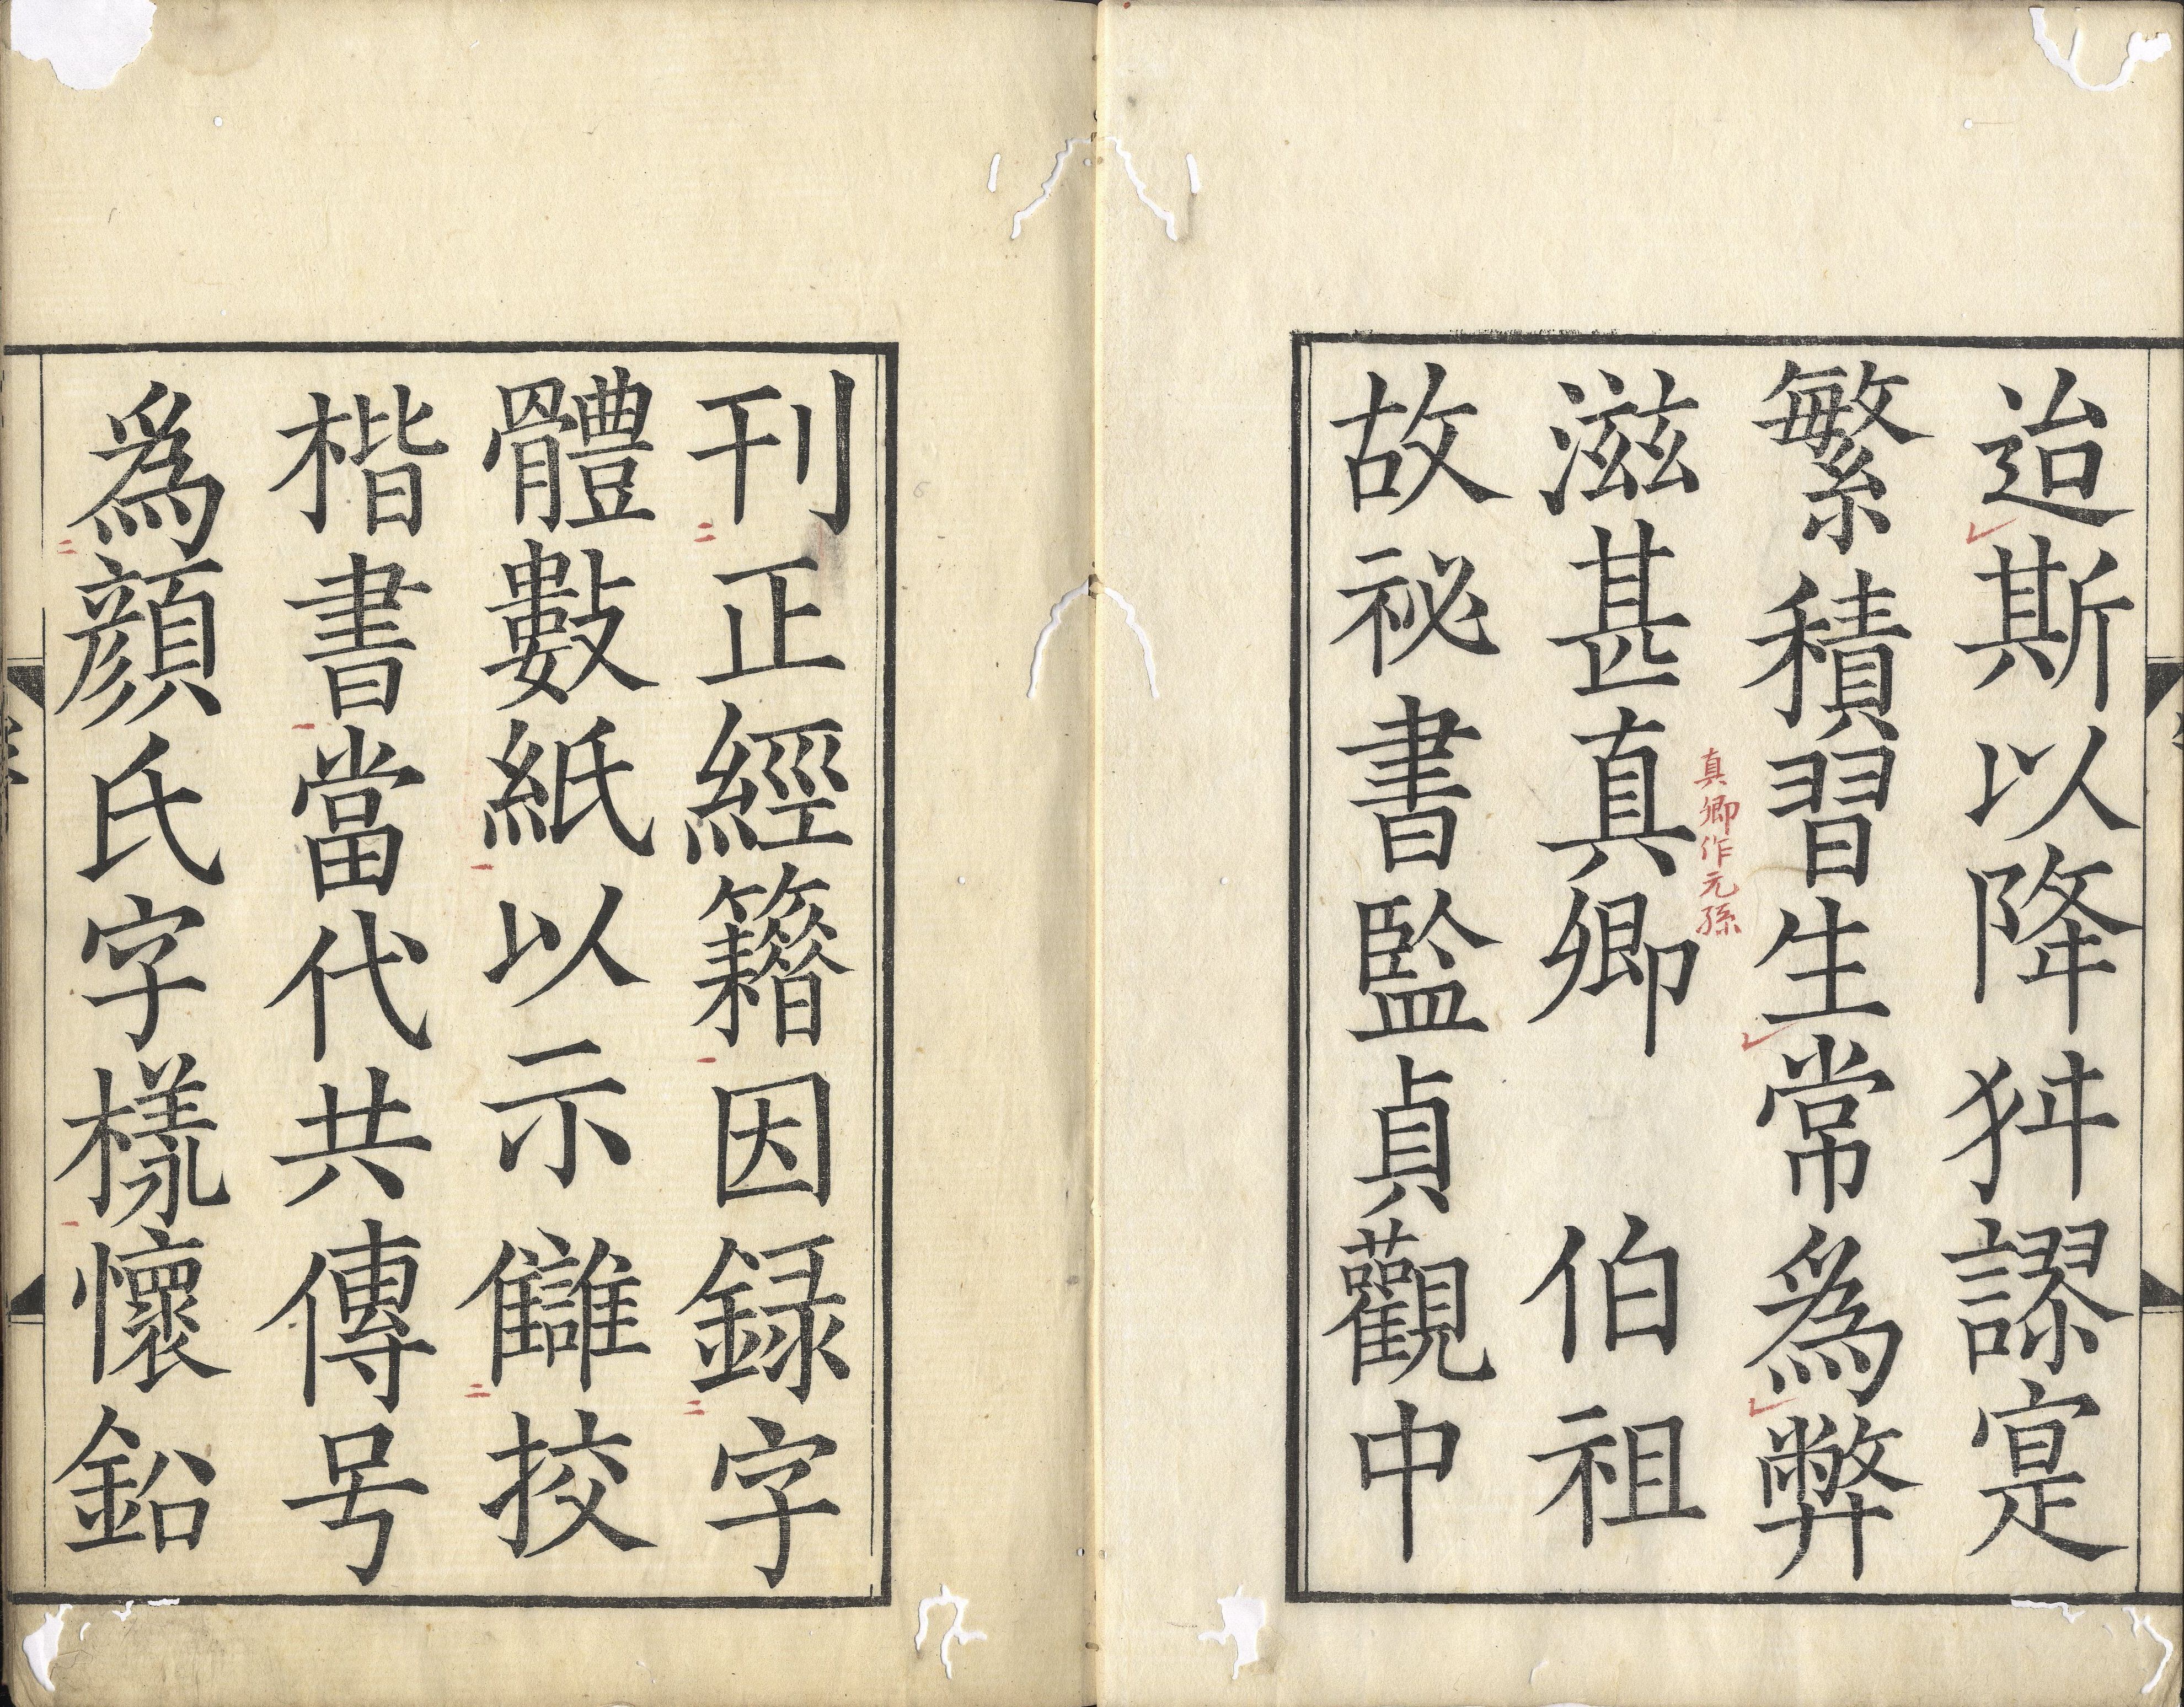 迨斯以降舛謬寔
繁積習生常為弊
滋甚真卿　伯祖
真卿作元孫
故祕書監貞觀中
刊正經籍因録字
體數紙以示讎挍
楷書當代共傳号
為顏氏字樣懷鉛